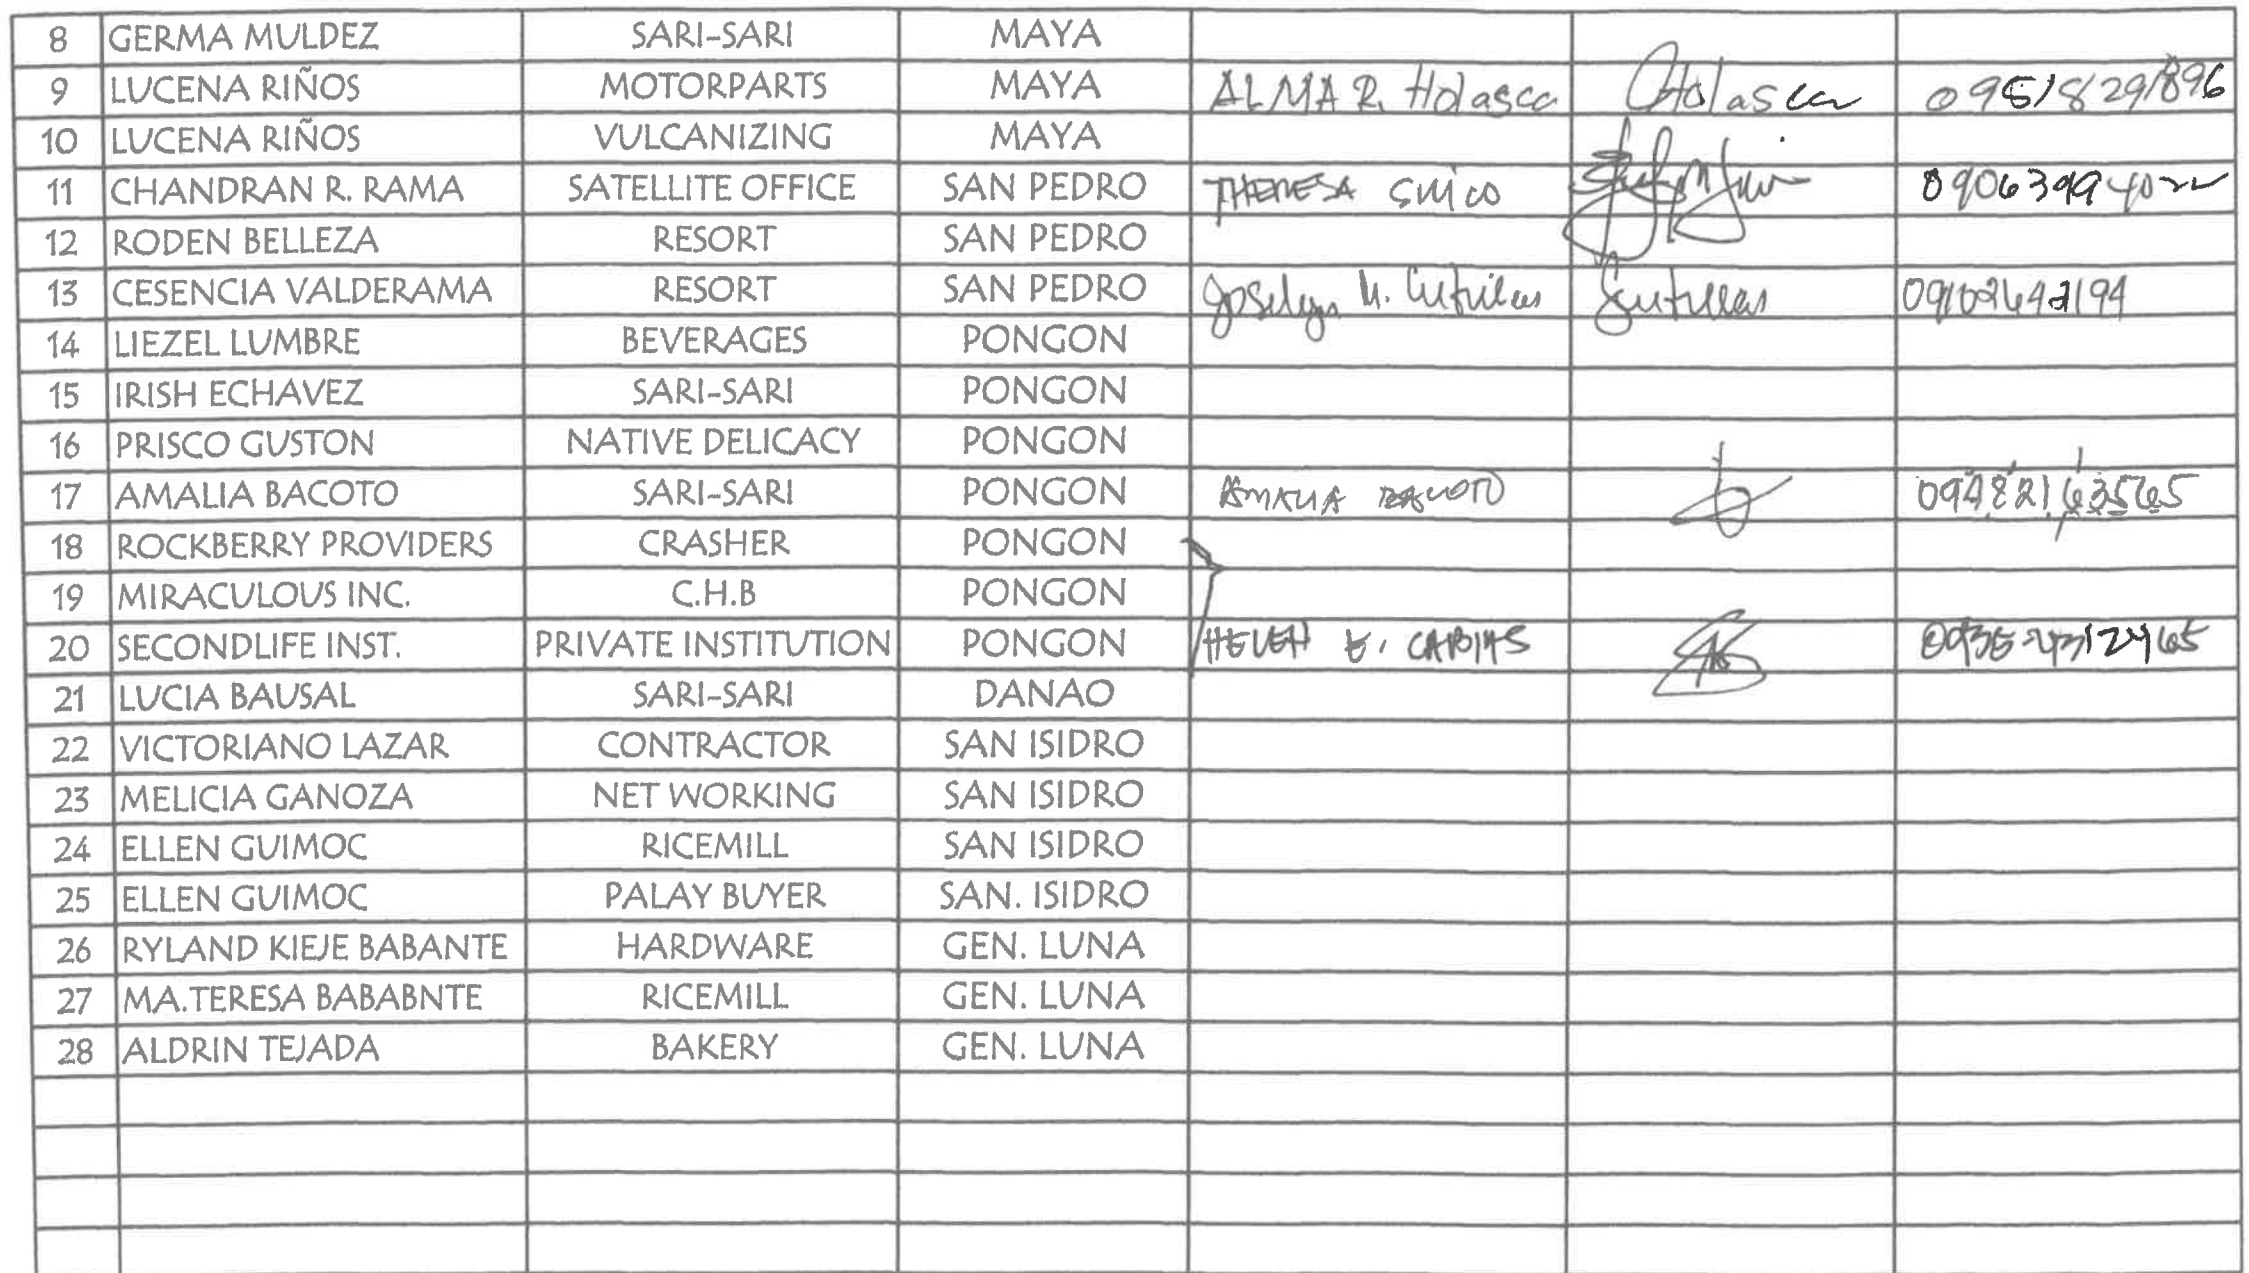 8 GERMA MULDEZ SARI-SARI MAYA
9 LUCENA RIÑOS MOTORPARTS MAYA ALMA R. Holasca Holasca 09518291896
10 LUCENA RIÑOS VULCANIZING MAYA
11 CHANDRAN R. RAMA SATELLITE OFFICE SAN PEDRO THERESA
12 RODEN BELLEZA RESORT SAN PEDRO
13 CESENCIA VALDERAMA RESORT SAN PEDRO Joselyn M. 09102642194
14 LIEZEL LUMBRE BEVERAGES PONGON
15 IRISH ECHAVEZ SARI-SARI PONGON
16 PRISCO GUSTON NATIVE DELICACY PONGON
17 AMALIA BACOTO SARI-SARI PONGON AMALIA BACOTO
18 ROCKBERRY PROVIDERS CRASHER PONGON
19 MIRACULOUS INC. C.H.B PONGON
20 SECONDLIFE INST. PRIVATE INSTITUTION PONGON HELEN E.
21 LUCIA BAUSAL SARI-SARI DANAO
22 VICTORIANO LAZAR CONTRACTOR SAN ISIDRO
23 MELICIA GANOZA NET WORKING SAN ISIDRO
24 ELLEN GUIMOC RICEMILL SAN ISIDRO
25 ELLEN GUIMOC PALAY BUYER SAN. ISIDRO
26 RYLAND KIEJE BABANTE HARDWARE GEN. LUNA
27 MA.TERESA BABABNTE RICEMILL GEN. LUNA
28 ALDRIN TEJADA BAKERY GEN. LUNA